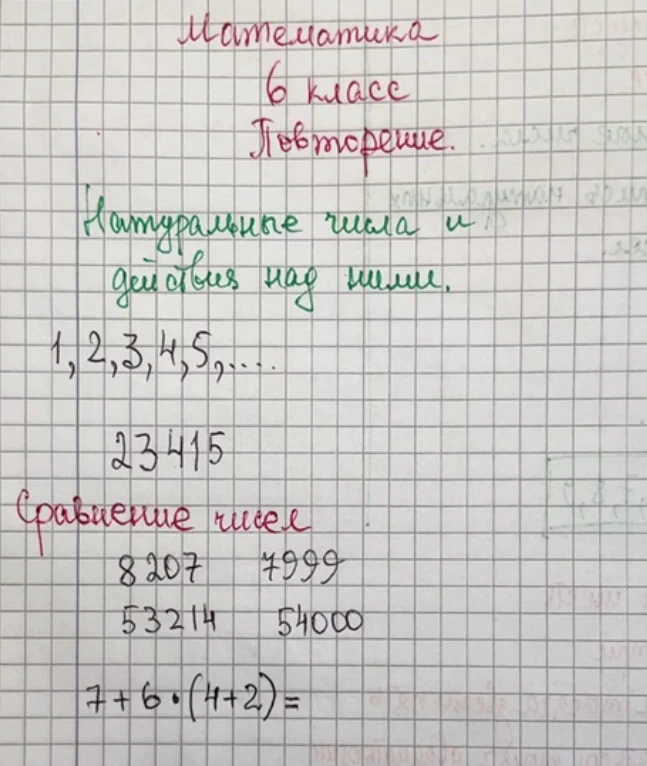 Математика
6 класс
Повторение.
Натуральные числа и
действия над ними.
1, 2, 3, 4, 5, ....
23415
Сравнение чисел
8207 7999
53214 54000
7 + 6 · (4+2) =